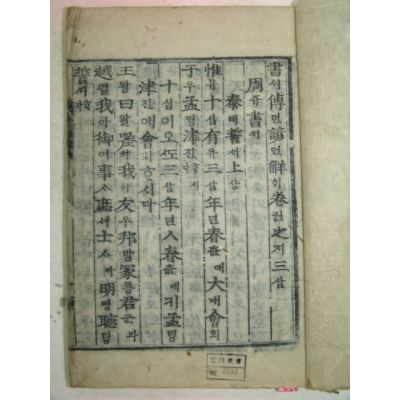 書셔傳뎐諺언解ᄒᆡ卷권之지三삼
周쥬書셔
泰태誓셔上샹
惟유十십有유三삼年년春츈애大대會회
于우孟ᄆᆡᆼ津진
十십이오ᄯᅩ三삼年년ㅅ春츈에 孟ᄆᆡᆼ
津진애會회ᄒᆞ시다
王왕曰왈嗟차我아友우邦방冢춍君군과
越월我아御어事ᄉᆞ庶셔士ᄉᆞ아明명聽텽
誓셔